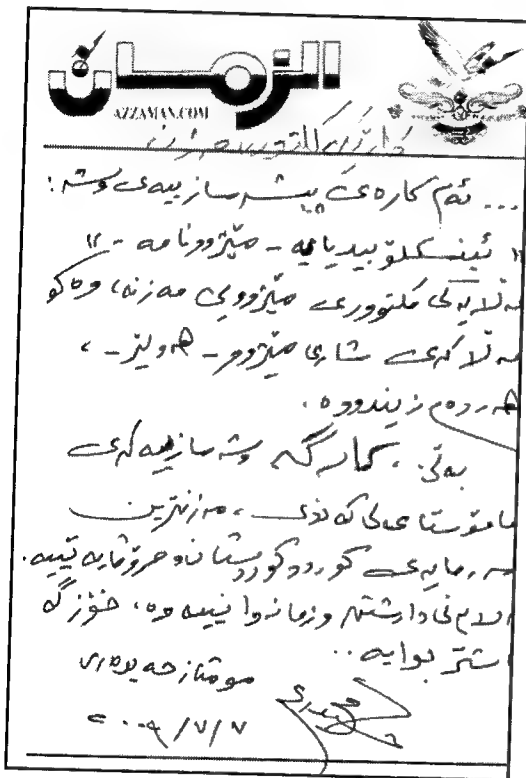 الزمان
AZZAMAN.COM
... ئەم کارەی پیشەسازییەی وشە:
" ئینسکلۆپیدیایە - مێژوونامە - "
قەڵایەکی کلتووری مێژوویی مەزنە، وەکو
قەڵاکەی شاری مێژوو - هەولێر - ،
هەردەم زیندووە.
بەڵێ، کارگە وشەسازییەکەی
مامۆستا
، مەزنترین
سەرمایەی کوردو کوردستان و مرۆڤایەتییە.
داڕشتن و زمانەوانییەوە، خۆزگە
بوایە..
مومتاز حەیدەری
٢٠٠٩/٧/٧